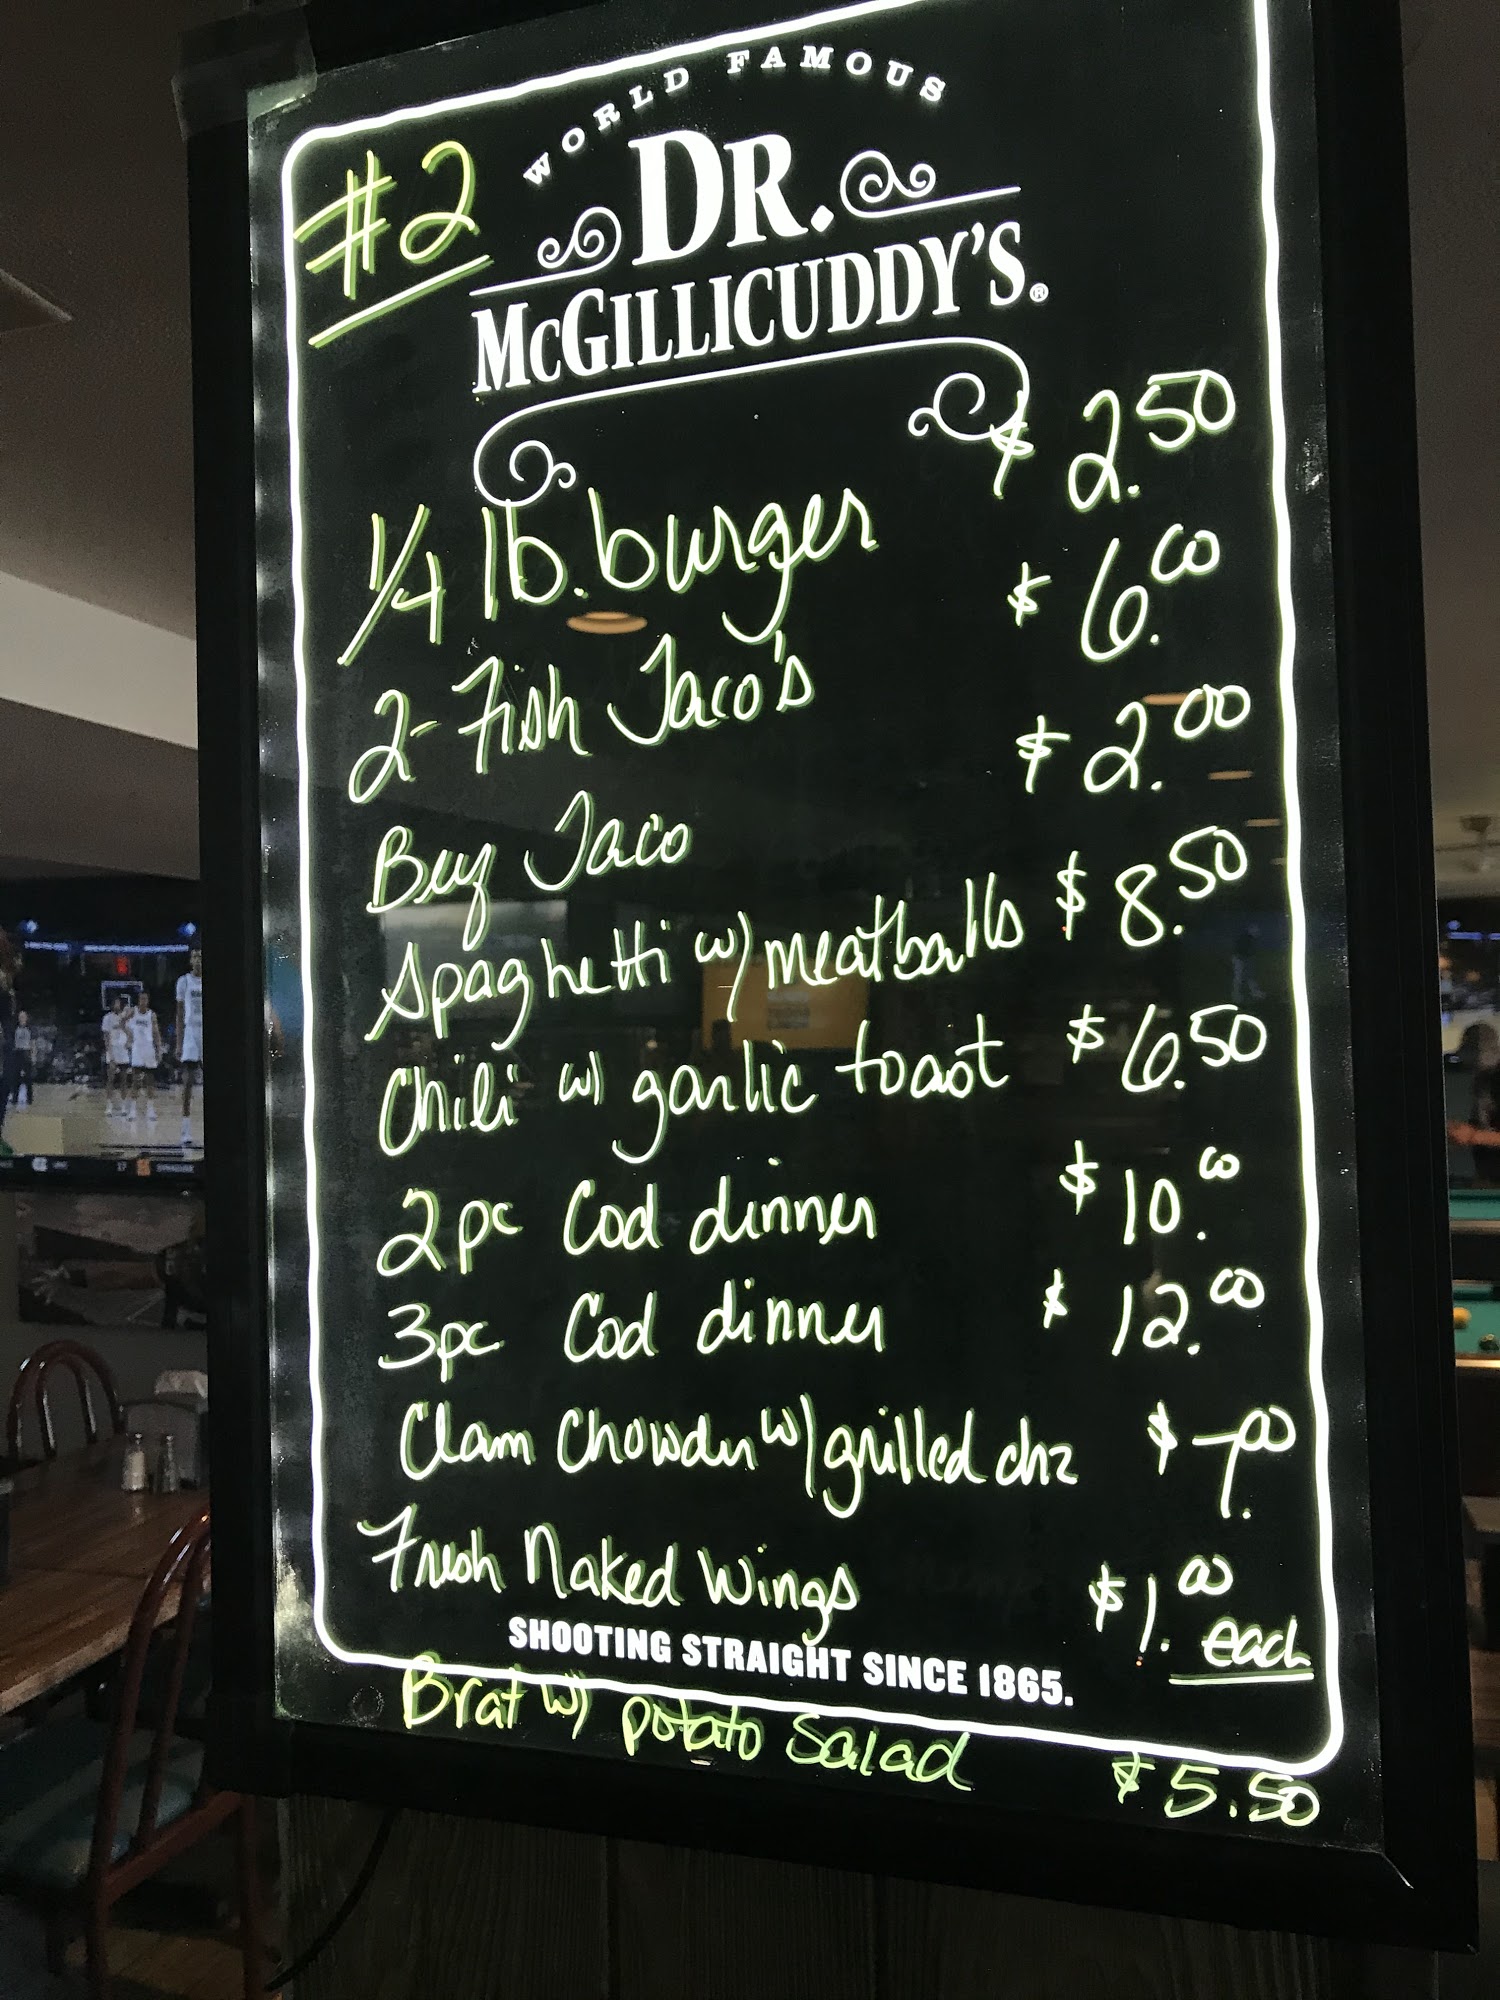 #2
WORLD FAMOUS
DR.
McGILLICUDDY'S®
1/4 lb. burger $2.50
2- Fish Taco's $6.00
Beef Taco $2.00
Spaghetti w/ meatballs $8.50
Chili w/ garlic toast $6.50
2pc Cod dinner $10.00
3pc Cod dinner $12.00
Clam Chowder w/ grilled chz $7.00
Fresh Naked Wings $1.00 each
SHOOTING STRAIGHT SINCE 1865.
Brat w/ potato Salad $5.50